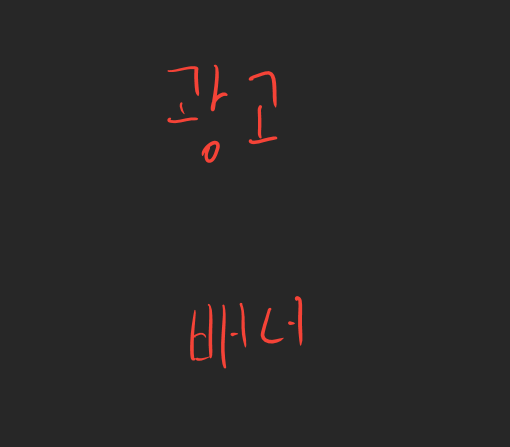 광고
배너